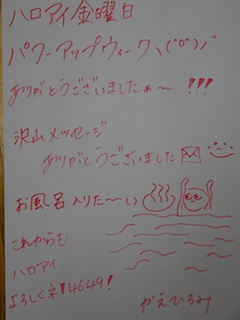 ハロアイ金曜日
パワーアップウィーク ヽ(*゚O゚)ノ゛
ありがとうございましたぁ〜 !!!
沢山メッセージ
ありがとうございました
お風呂入りた〜い
これからも
ハロアイ
よろしくネ!4649!
かえひろみ